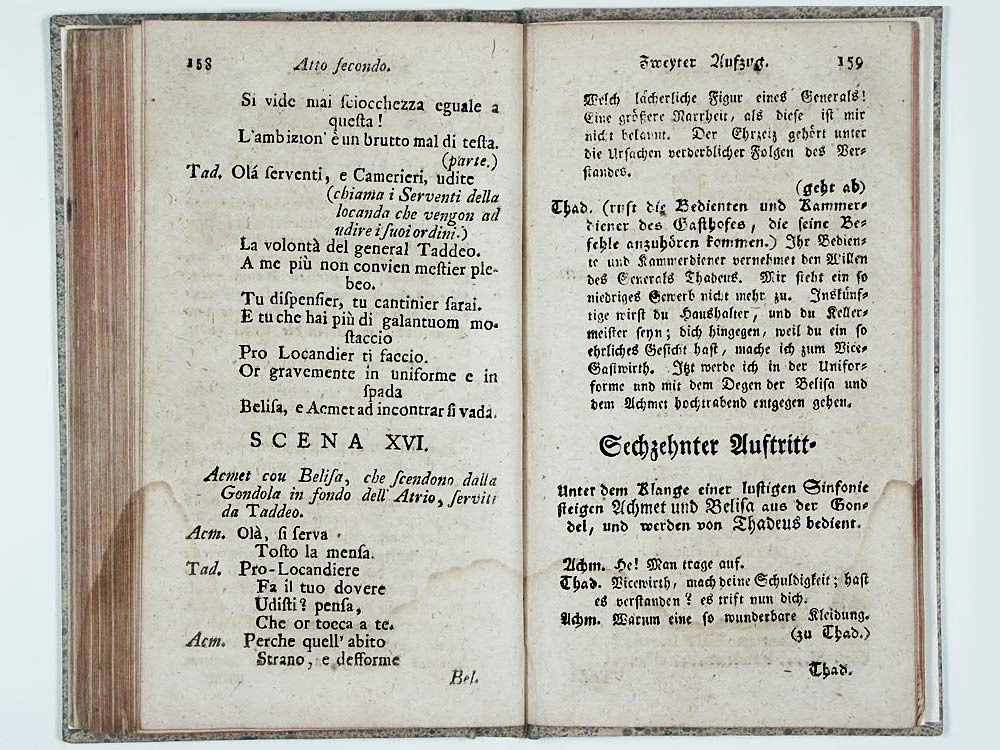 158 Atto ſecondo.
Si vide mai ſciocchezza eguale a
queſta !
L'ambizion' è un brutto mal di teſta.
(parte.)
Tad. Olá ſerventi, e Camerieri, udite
(chiama i Serventi della
locanda che vengon ad
udire i ſuoi ordini.)
La volontà del general Taddeo.
A me più non convien meſtier ple-
beo.
Tu diſpenſier, tu cantinier ſarai.
E tu che hai più di galantuom mo-
ſtaccio
Pro Locandier ti faccio.
Or gravemente in uniforme e in
ſpada
Beliſa, e Acmet ad incontrar ſi vada.
SCENA XVI.
Acmet cou Beliſa, che ſcendono dalla
Gondola in fondo dell' Atrio, ſerviti
da Taddeo.
Acm. Olà, ſi ſerva
Toſto la menſa.
Tad. Pro-Locandiere
Fa il tuo dovere
Udiſti? penſa,
Che or tocca a te.
Acm. Perche quell' abito
Strano, e defforme
Bel.
Zweyter Aufzug. 159
Welch lächerliche Figur eines Generals!
Eine größere Narrheit, als dieſe iſt mir
nicht bekannt. Der Ehrgeiz gehört unter
die Urſachen verderblicher Folgen des Ver-
ſtandes.
(geht ab)
Thad. (ruft die Bedienten und Kammer-
diener des Gaſthofes, die ſeine Be-
fehle anzuhören kommen.) Ihr Bedien-
te und Kammerdiener vernehmet den Willen
des Generals Thadeus. Mir ſteht ein ſo
niedriges Gewerb nicht mehr zu. Inskünf-
tige wirſt du Haushalter, und du Keller-
meiſter ſeyn; dich hingegen, weil du ein ſo
ehrliches Geſicht haſt, mache ich zum Vice-
Gaſtwirth. Itzt werde ich in der Unifor-
forme und mit dem Degen der Beliſa und
dem Achmet hochtrabend entgegen gehen.
Sechzehnter Auftritt.
Unter dem Klange einer luſtigen Sinfonie
ſteigen Achmet und Beliſa aus der Gon-
del, und werden von Thadeus bedient.
Achm. He! Man trage auf.
Thad. Vicewirth, mach deine Schuldigkeit; haſt
es verſtanden? es trift nun dich.
Achm. Warum eine ſo wunderbare Kleidung.
(zu Thad.)
Thad.